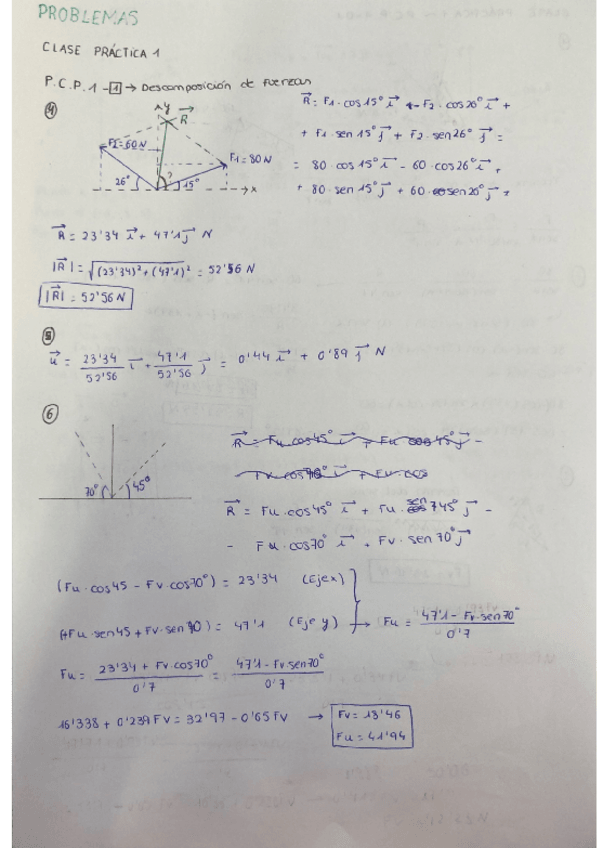 PROBLEMAS
CLASE PRÁCTICA 1
P.C.P.1 - 1 → Descomposición de fuerzas
4
y
R
F2=60N
F1=80N
26°
?
15°
x
R = F1·cos15° i + -F2·cos26° i +
+ F1·sen15° j + F2·sen26° j =
= 80·cos15° i - 60·cos26° i +
+ 80·sen15° j + 60·sen26° j =
R = 23'34 i + 47'1 j N
|R| = √(23'34)² + (47'1)² = 52'56 N
|R| = 52'56 N
5
u = 23'34/52'56 i + 47'1/52'56 j = 0'44 i + 0'89 j N
6
70°
45°
R = Fu·cos45° i + Fu·sen 45° j -
- Fu·cos70° i + Fv·sen70° j
(Fu·cos45 - Fv·cos70°) = 23'34 (Eje x)
(Fu·sen45 + Fv·sen70) = 47'1 (Eje y) → Fu = 47'1 - Fv·sen70°/0'7
Fu = 23'34 + Fv·cos70°/0'7 = 47'1 - Fv·sen70°/0'7
16'338 + 0'239 Fv = 32'97 - 0'65 Fv → Fv = 13'46
Fu = 41'94